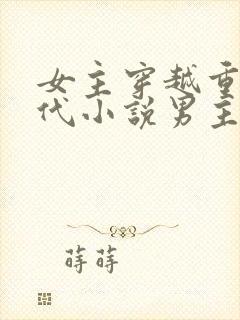 女主穿越重
代小說男主
蒔蒔